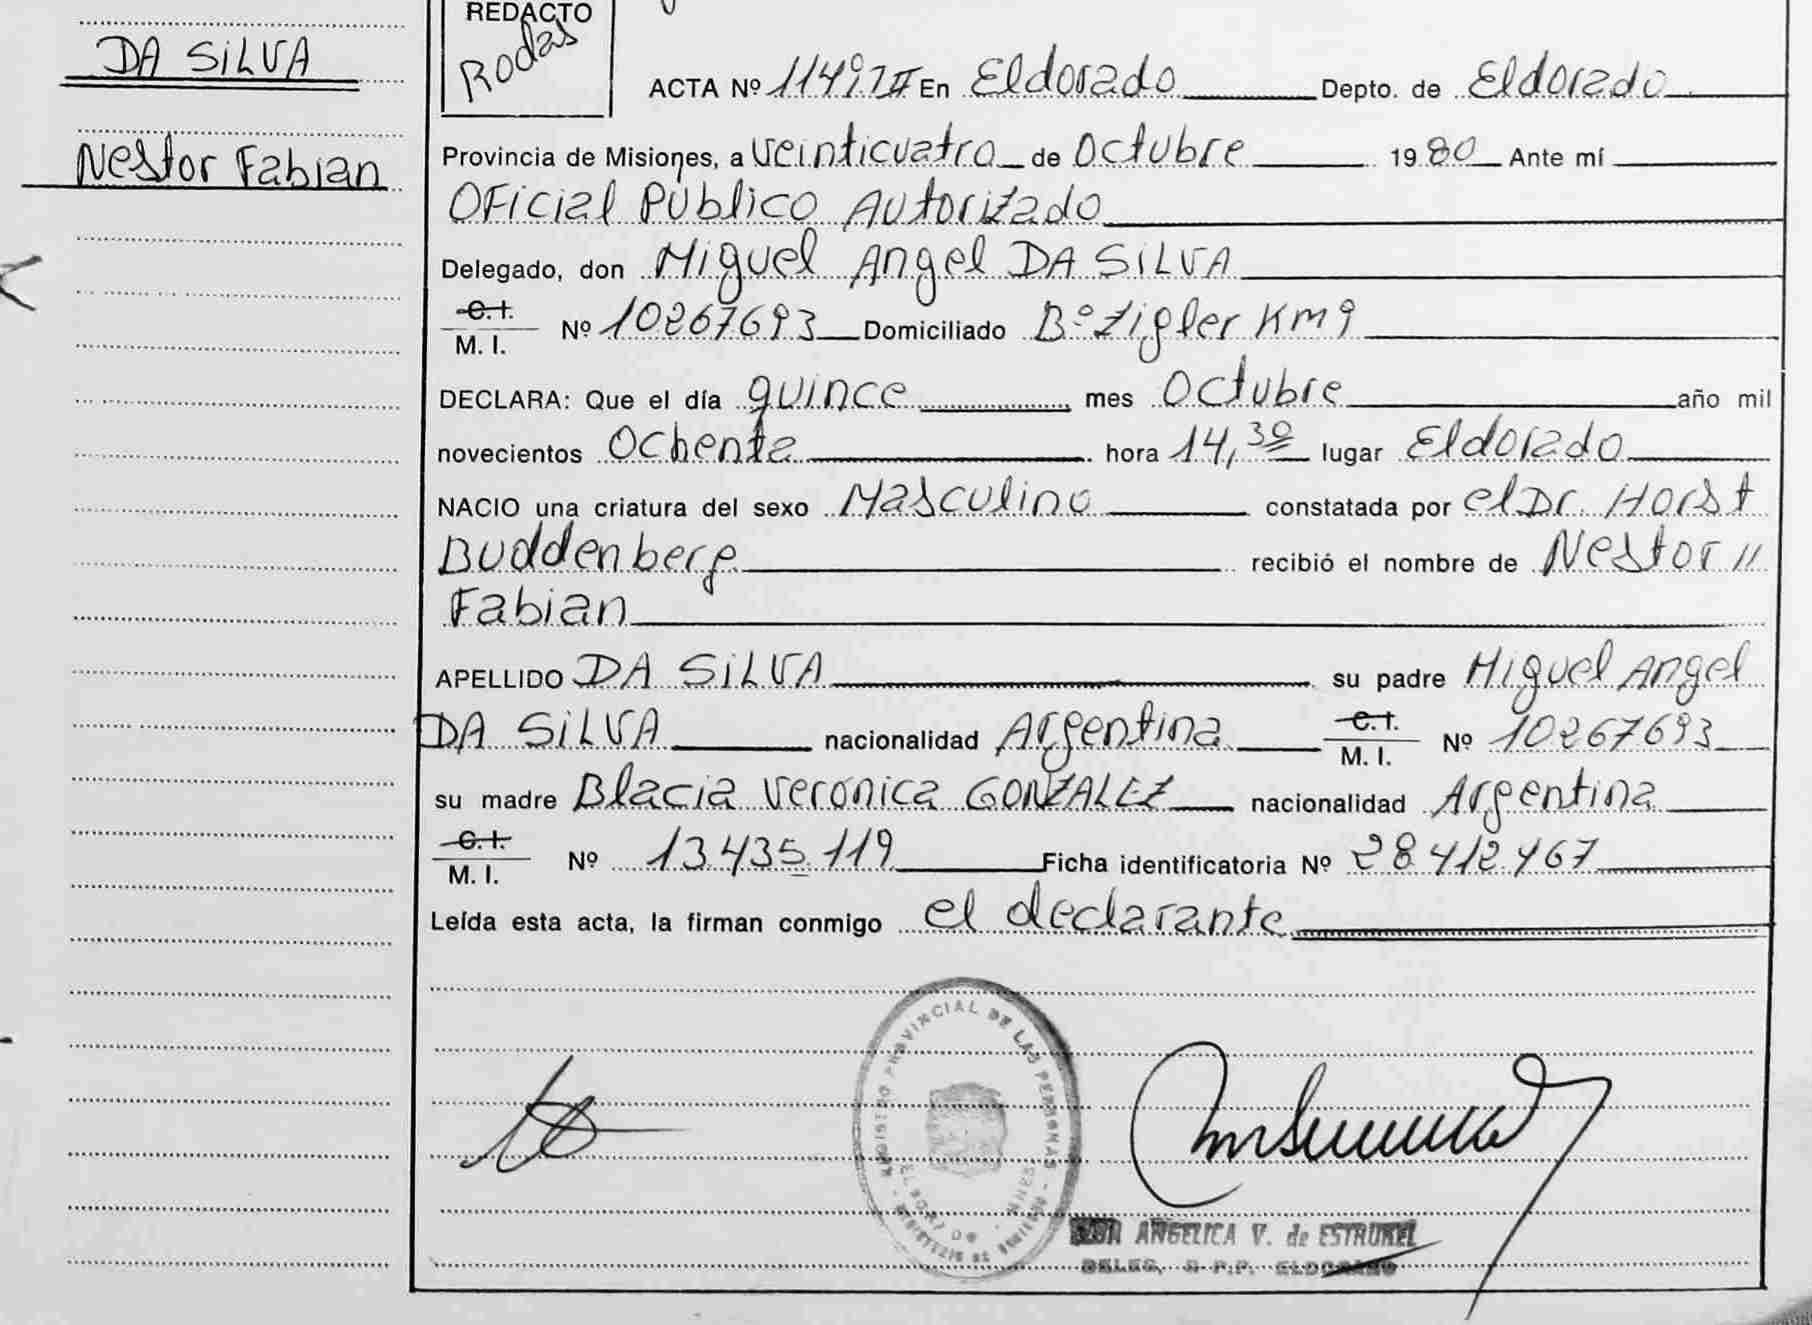 DA SILVA
Nestor Fabian
REDACTO
Rodas
ACTA Nº 1149 II En Eldorado Depto. de Eldorado
Provincia de Misiones, a veinticuatro de Octubre 1980 Ante mí
Oficial Público Autorizado
Delegado, don Miguel Angel DA SILVA
C.I.
M. I. Nº 10267693 Domiciliado Bº Zigler Km 9
DECLARA: Que el día quince mes Octubre año mil
novecientos Ochenta hora 14,30 lugar Eldorado
NACIO una criatura del sexo Masculino constatada por el Dr. Horst
Buddenberg recibió el nombre de Nestor //
Fabian
APELLIDO DA SILVA su padre Miguel Angel
DA SILVA nacionalidad Argentina C.I. M. I. Nº 10267693
su madre Blacia Veronica GONZALEZ nacionalidad Argentina
C.I.
M. I. Nº 13.435.119 Ficha identificatoria Nº 28.412.467
Leída esta acta, la firman conmigo el declarante
REGISTRO PROVINCIAL DE LAS PERSONAS
ANGELICA V. de ESTRUKEL
DELEG. R.P.P. ELDORADO